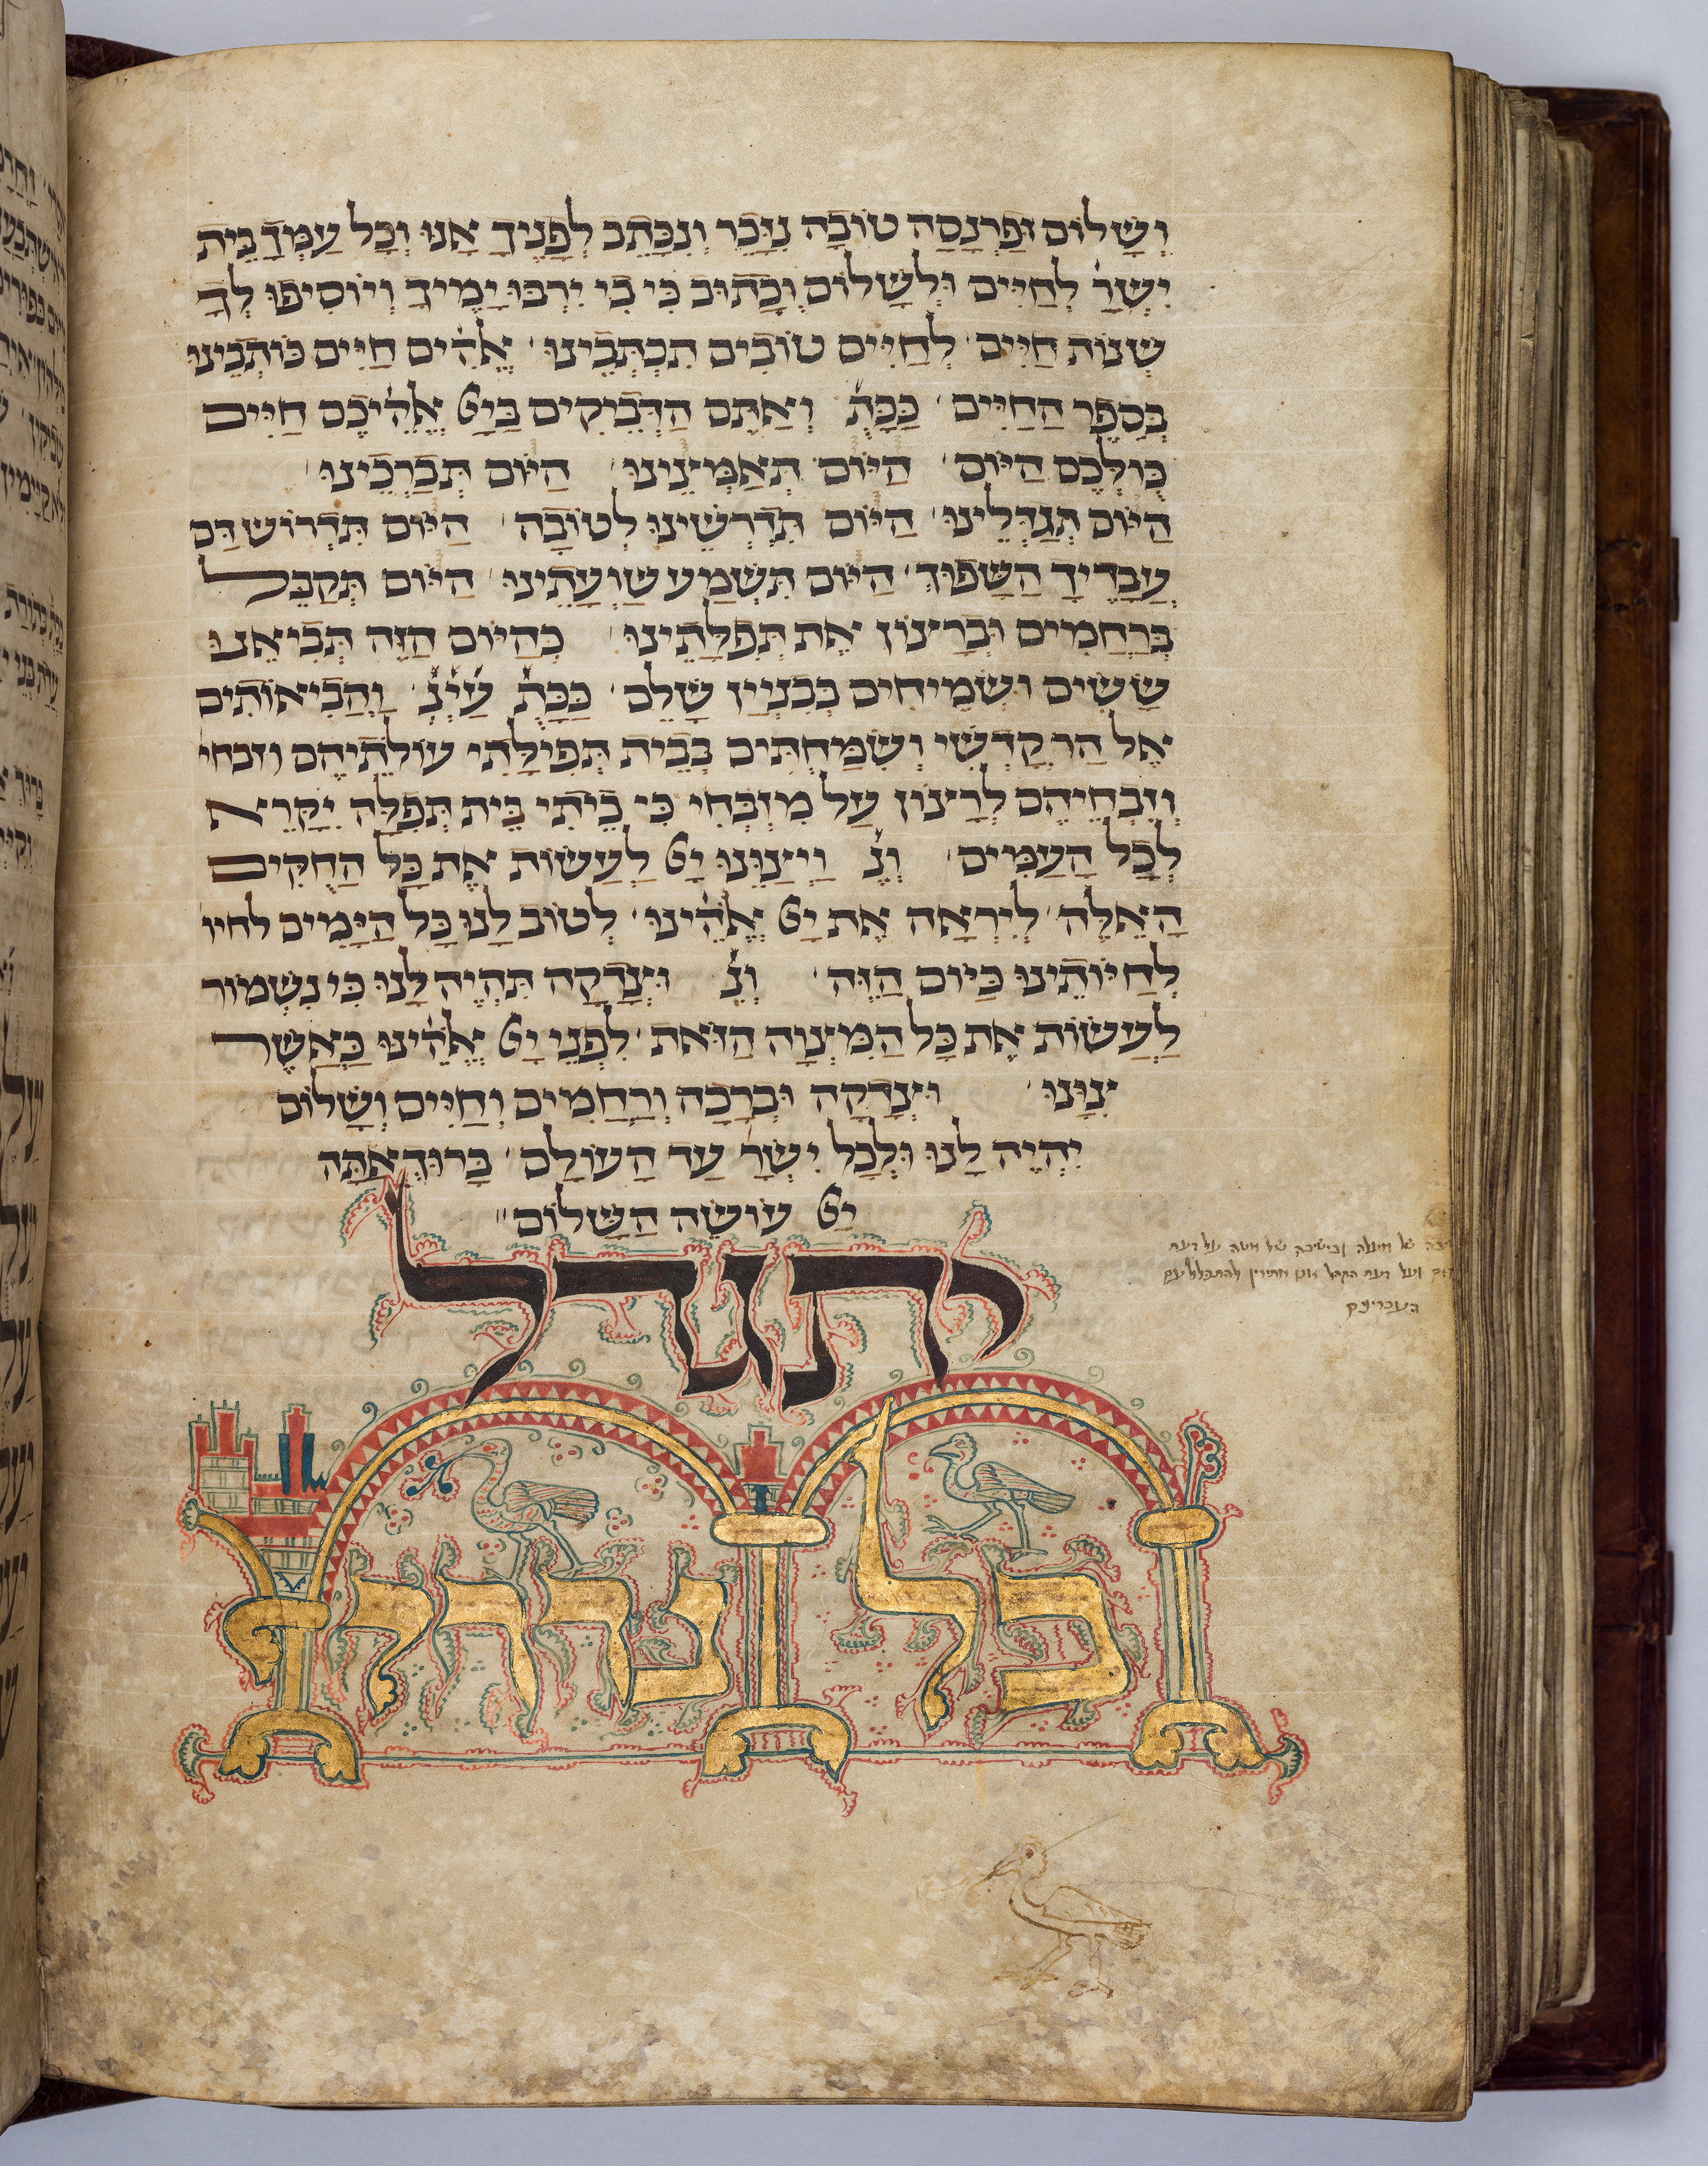 וְשָׁלוֹם וּפַרְנָסָה טוֹבָה נִזָּכֵר וְנִכָּתֵב לְפָנֶיךָ אָנוּ וְכָל עַמְּךָ בֵּית
יִשְׂרָ׳ לְחַיִּים וּלְשָׁלוֹם וְכָתוּב כִּי בִי יִרְבּוּ יָמֶיךָ וְיוֹסִיפוּ לְךָ
שְׁנוֹת חַיִּים׳ לְחַיִּים טוֹבִים תִּכְתְּבֵינוּ׳ אֱלֹהִים חַיִּים כּוֹתְבֵינוּ
בְּסֵפֶר הַחַיִּים׳ כַּכָּתֻ׳ וְאַתֶּם הַדְּבֵיקִים בַּיָי אֱלֹהֵיכֶם חַיִּים
כּוּלְּכֶם הַיּוֹם׳ הַיּוֹם תְּאַמְּצֵינוּ׳ הַיּוֹם תְּבָרְכֵינוּ׳
הַיּוֹם תְּגַדְּלֵינוּ׳ הַיּוֹם תִּדְרְשֵׁינוּ לְטוֹבָה׳ הַיּוֹם תִּדְרוֹשׁ דַּם
עֲבָדֶיךָ הַשָּׁפוּךְ׳ הַיּוֹם תִּשְׁמַע שַׁוְעָתֵינוּ׳ הַיּוֹם תְּקַבֵּל
בְּרַחֲמִים וּבְרָצוֹן אֶת תְּפִלָּתֵינוּ׳ כְּהַיּוֹם הַזֶּה תְּבִיאֵנוּ
שָׂשִׂים וּשְׂמֵיחִים בְּבִנְיַין שָׁלֵם׳ כַּכָּתֻ׳ עַ׳יְ׳נְ׳ וַהֲבִיאוֹתִים
אֶל הַר קָדְשִׁי וְשִׂמַּחְתִּים בְּבֵית תְּפִילָּתִי עוֹלֹתֵיהֶם וזבחי
וְזִבְחֵיהֶם לְרָצוֹן עַל מִזְבְּחִי כִּי בֵיתִי בֵּית תְּפִלָּה יִקָּרֵא
לְכָל הָעַמִּים׳ וְנֶ׳ וַיְצַוֵּנוּ יָי לַעֲשׂוֹת אֶת כָּל הַחֻקִּים
הָאֵלֶּה׳ לְיִרְאָה אֶת יָי אֱלֹהֵינוּ׳ לְטוֹב לָנוּ כָּל הַיָּמִים לחיו
לְחַיּוֹתֵינוּ כַּיּוֹם הַזֶּה׳ וְנֶ׳ וּצְדָקָה תִּהְיֶה לָּנוּ כִּי נִשְׁמוֹר
לַעֲשׂוֹת אֶת כָּל הַמִּצְוָה הַזֹּאת׳ לִפְנֵי יָי אֱלֹהֵינוּ כַּאֲשֶׁר
צִוָּנוּ׳ וּצְדָקָה וּבְרָכָה וְרַחֲמִים וְחַיִּים וְשָׁלוֹם
יִהְיֶה לָנוּ וּלְכָל יִשְׂרָ׳ עַד הָעוֹלָם׳ בָּרוּךְ אַתָּה
יָי עוֹשֶׂה הַשָּׁלוֹם״
יתגדל
כל נדרי